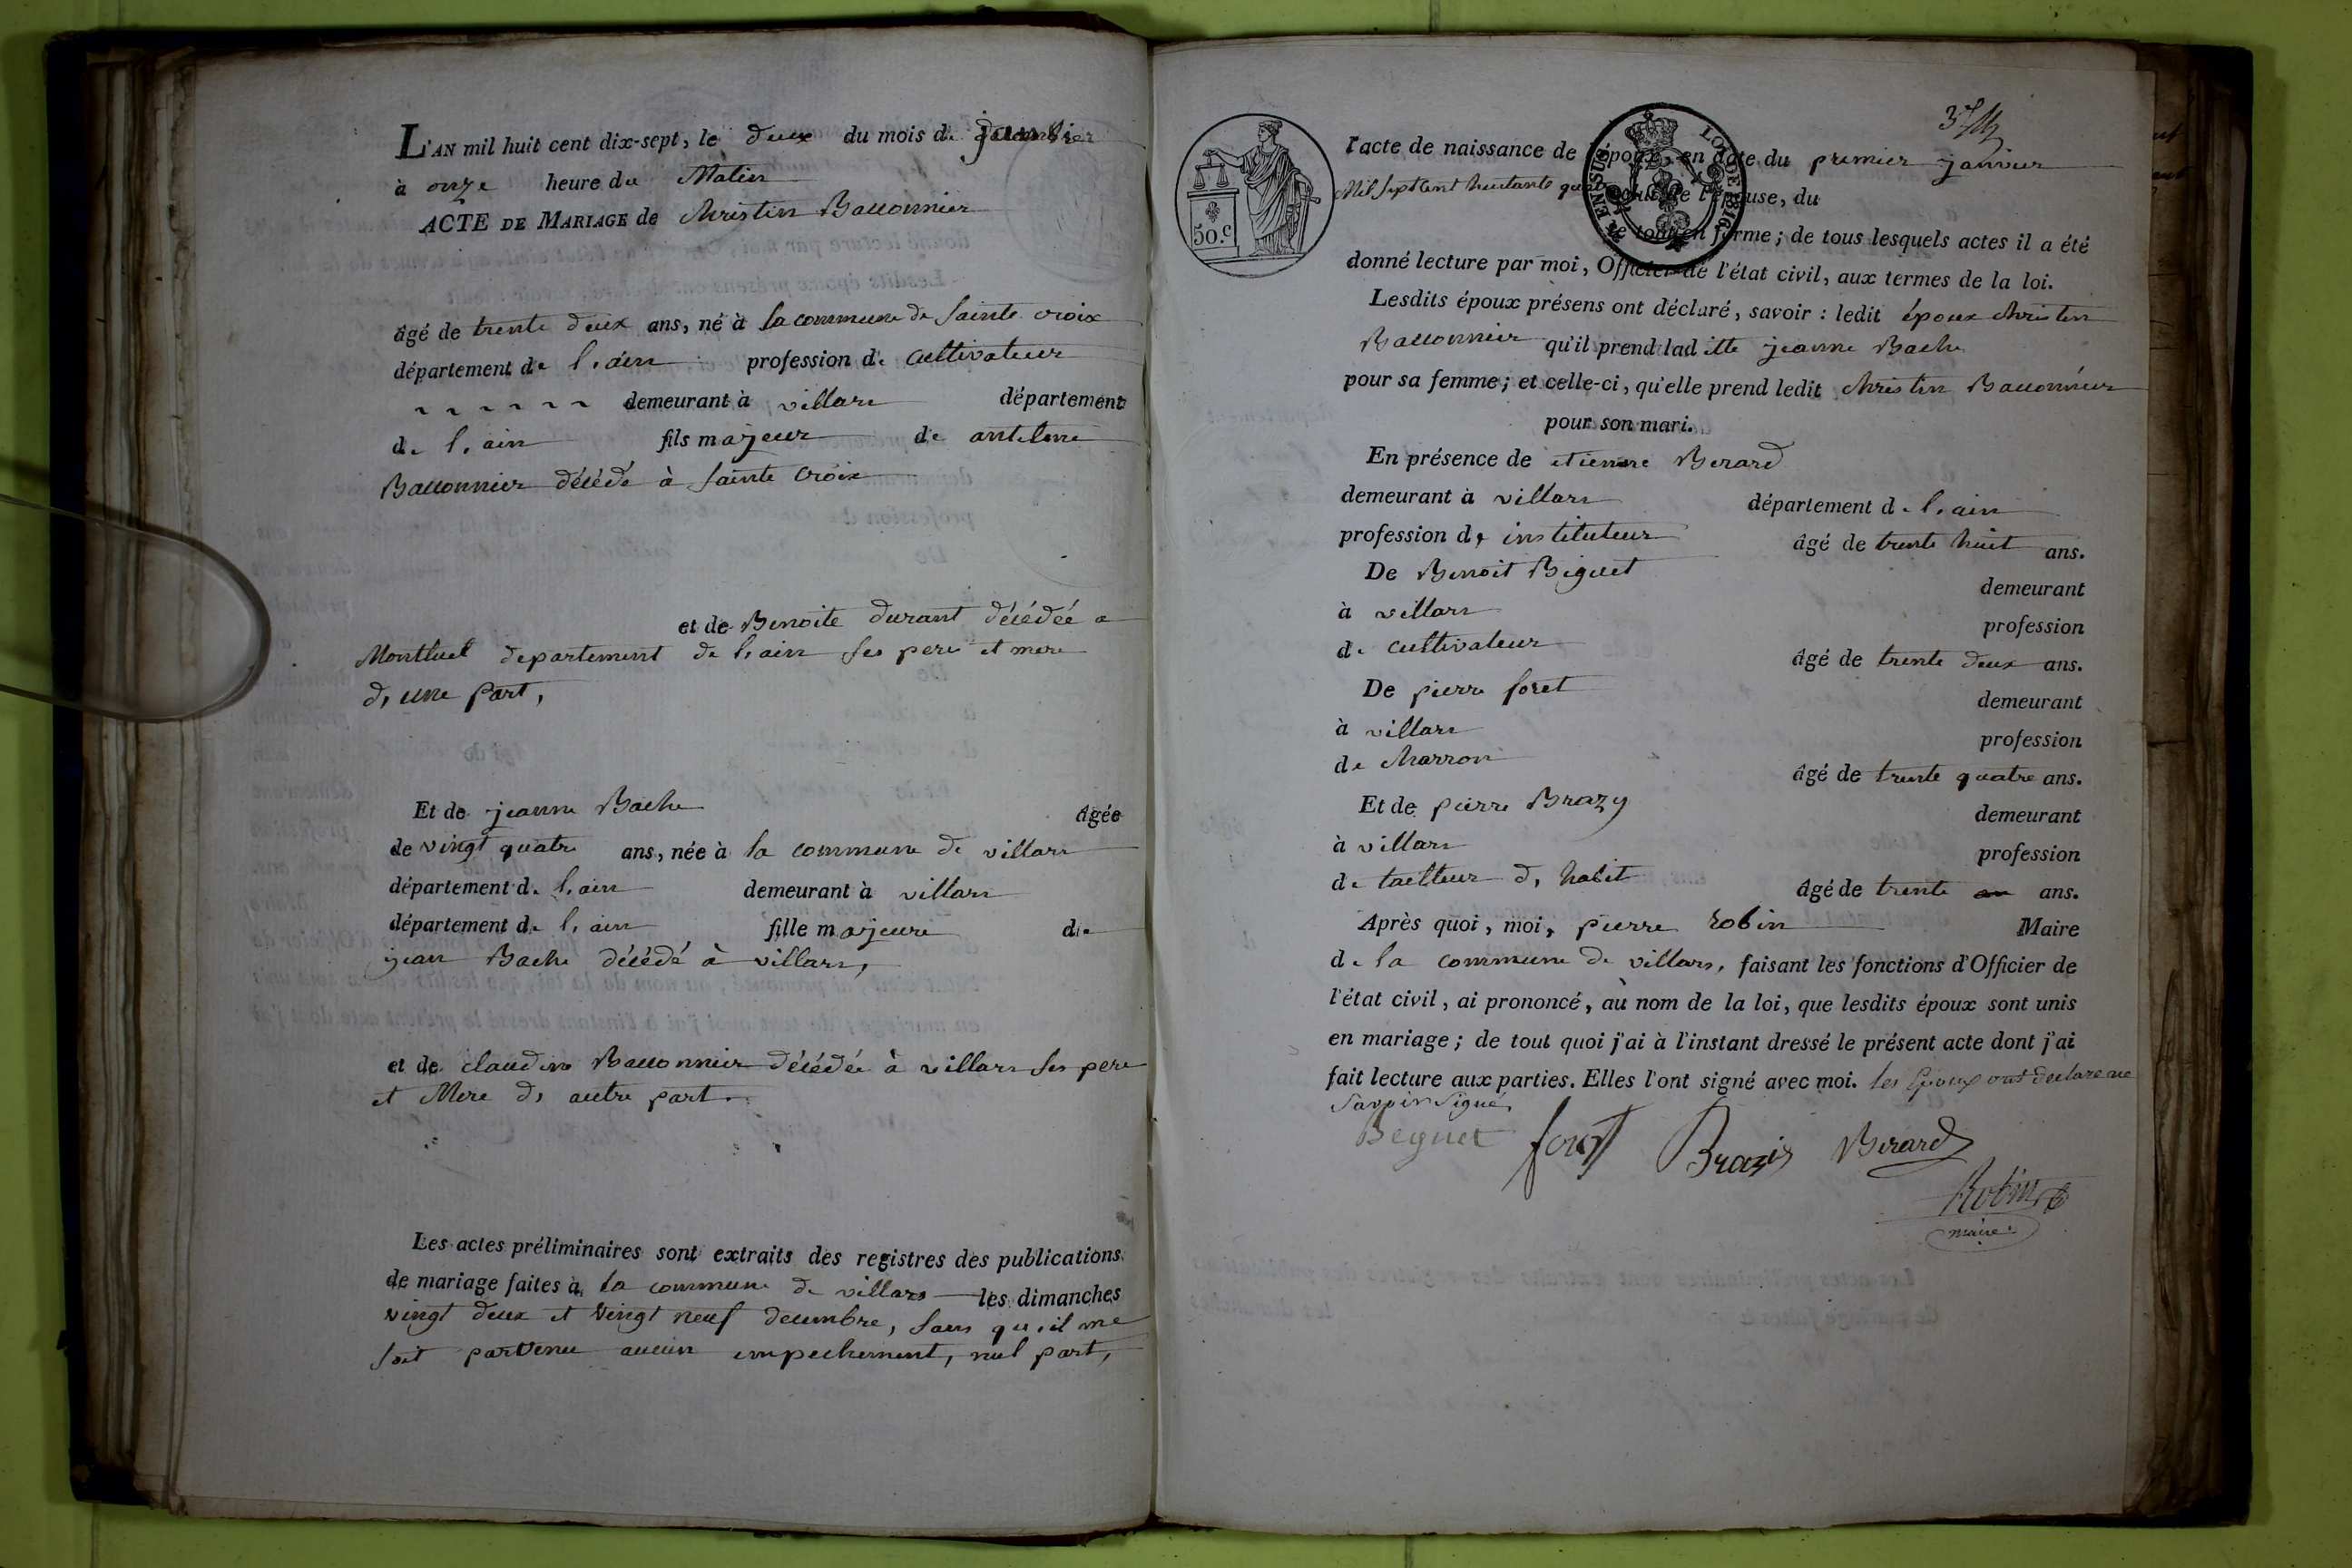 L'AN mil huit cent dix-sept, le deux du mois de janvier
à onze heure du Matin
ACTE DE MARIAGE de Christin Baconnier
âgé de trente deux ans, né à la commune de Sainte croix
département de l'ain profession de Cultivateur
demeurant à villars département
de l'ain fils majeur de antelme
Baconnier décédé à Sainte Croix
et de Benoite durant décédée a
Montluel departement de l'ain ses pere et mere
d'une part,
Et de jeanne Bache âgée
de vingt quatre ans, née à la commune de villars
département de l'ain demeurant à villars
département de l'ain fille majeure de
jean Bache décédé à villars,
et de claudine Baconnier décédée à villars ses pere
et Mere d'autre part.
Les actes préliminaires sont extraits des registres des publications
de mariage faites à la commune de villars les dimanches
vingt deux et vingt neuf decembre, sans qu'il me
soit parvenu aucun empechement, nul part,
50.c
EN SUS
LOI DE 1816
l'acte de naissance de l'époux, en date du premier janvier
Mil sept cent huitante quatre celui de l'épouse, du
le tout en forme; de tous lesquels actes il a été
donné lecture par moi, Officier de l'état civil, aux termes de la loi.
Lesdits époux présens ont déclaré, savoir : ledit époux Christin
Baconnier qu'il prend laditte jeanne Bache
pour sa femme; et celle-ci, qu'elle prend ledit Christin Baconnier
pour son mari.
En présence de etienne Berard
demeurant à villars département de l'ain
profession de instituteur âgé de trente huit ans.
De Benoit Biguet demeurant
à villars profession
de cultivateur âgé de trente deux ans.
De pierre foret demeurant
à villars profession
de charron âgé de trente quatre ans.
Et de pierre Brazy demeurant
à villars profession
de tailleur d'habit âgé de trente ans.
Après quoi, moi, pierre robin Maire
de la commune de villars, faisant les fonctions d'Officier de
l'état civil, ai prononcé, au nom de la loi, que lesdits époux sont unis
en mariage; de tout quoi j'ai à l'instant dressé le présent acte dont j'ai
fait lecture aux parties. Elles l'ont signé avec moi. les Epoux ont declare ne
Savoir Signé,
Beguet foret Brazis Berard
Robin
maire